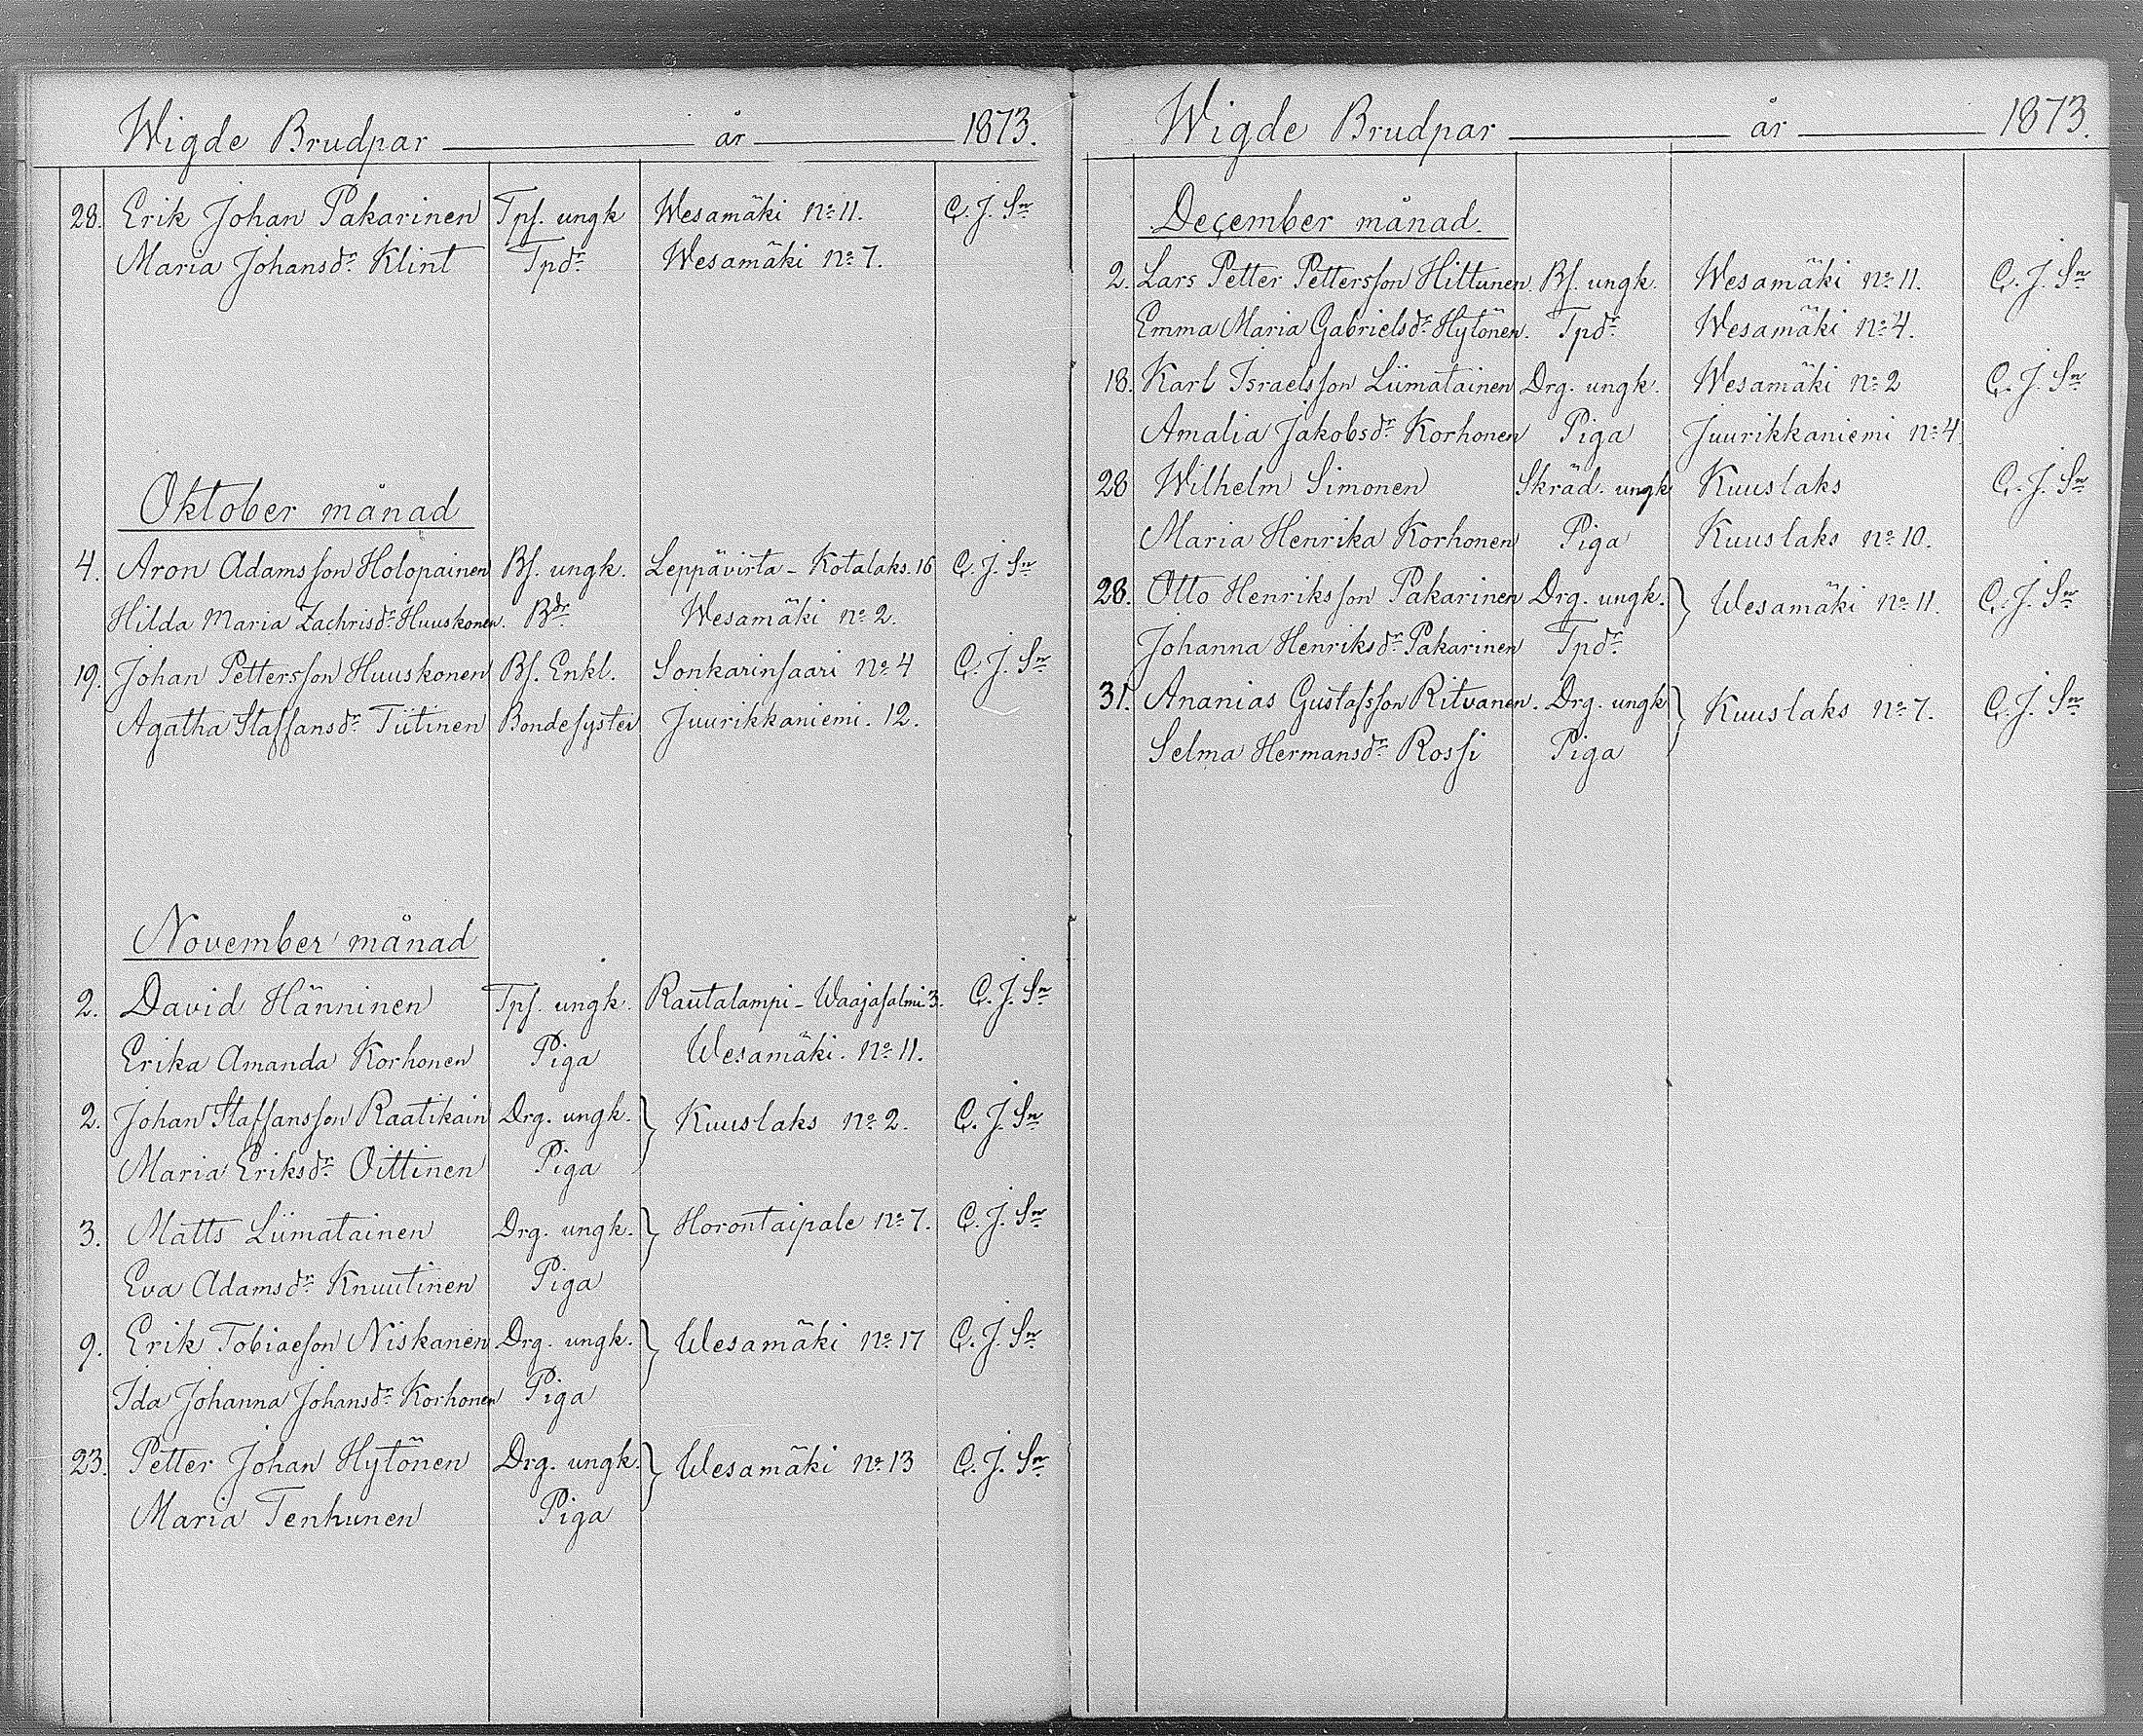 Wigde Brudpar år 1873.
28. Erik Johan Pakarinen Tps. ungk Wesamäki No 11. C. J. Sn
Maria Johansdr Klint Tpdr Wesamäki No 7.
Oktober månad
4. Aron Adamsson Holopainen Bs. ungk. Leppävirta - Kotalaks. 16 C. J. Sn
Hilda Maria Zachrisdr Huuskonen. Bdr Wesamäki No 2.
19. Johan Pettersson Huuskonen Bs. Enkl. Sonkarinsaari No 4 C. J. Sn
Agatha Staffansdr Tiitinen Bondesyster Juurikkaniemi. 12.
November månad
2. David Hänninen Tps. ungk. Rautalampi - Waajasalmi 3. C. J. Sn
Erika Amanda Korhonen Piga Wesamäki. No 11.
2. Johan Staffansson Raatikain Drg. ungk. } Kuuslaks No 2. C. J. Sn
Maria Eriksdr Oittinen Piga
3. Matts Liimatainen Drg. ungk. } Horontaipale No 7. C. J. Sn
Eva Adamsdr Knuutinen Piga
9. Erik Tobiaeson Niskanen Drg. ungk. } Wesamäki No 17 C. J. Sn
Ida Johanna Johansdr Korhonen Piga
23. Petter Johan Hytönen Drg. ungk. } Wesamäki No 13 C. J. Sn
Maria Tenhunen Piga
Wigde Brudpar år 1873.
December månad.
2. Lars Petter Pettersson Hiltunen. Bs. ungk. Wesamäki No 11. C. J. Sn
Emma Maria Gabrielsdr Hytönen. Tpdr Wesamäki No 4.
18. Karl Israelsson Liimatainen Drg. ungk. Wesamäki No 2 C. J. Sn
Amalia Jakobsdr Korhonen Piga Juurikkaniemi No 4
28 Wilhelm Simonen Skräd. ungk Kuuslaks C. J. Sn
Maria Henrika Korhonen Piga Kuuslaks No 10.
28. Otto Henriksson Pakarinen Drg. ungk. } Wesamäki No 11. C. J. Sn
Johanna Henriksdr Pakarinen Tpdr
31. Ananias Gustafsson Ritvanen. Drg. ungk } Kuuslaks No 7. C. J. Sn
Selma Hermansdr Rossi Piga